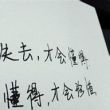 失去，才会懂得，
懂得，才会珍惜。